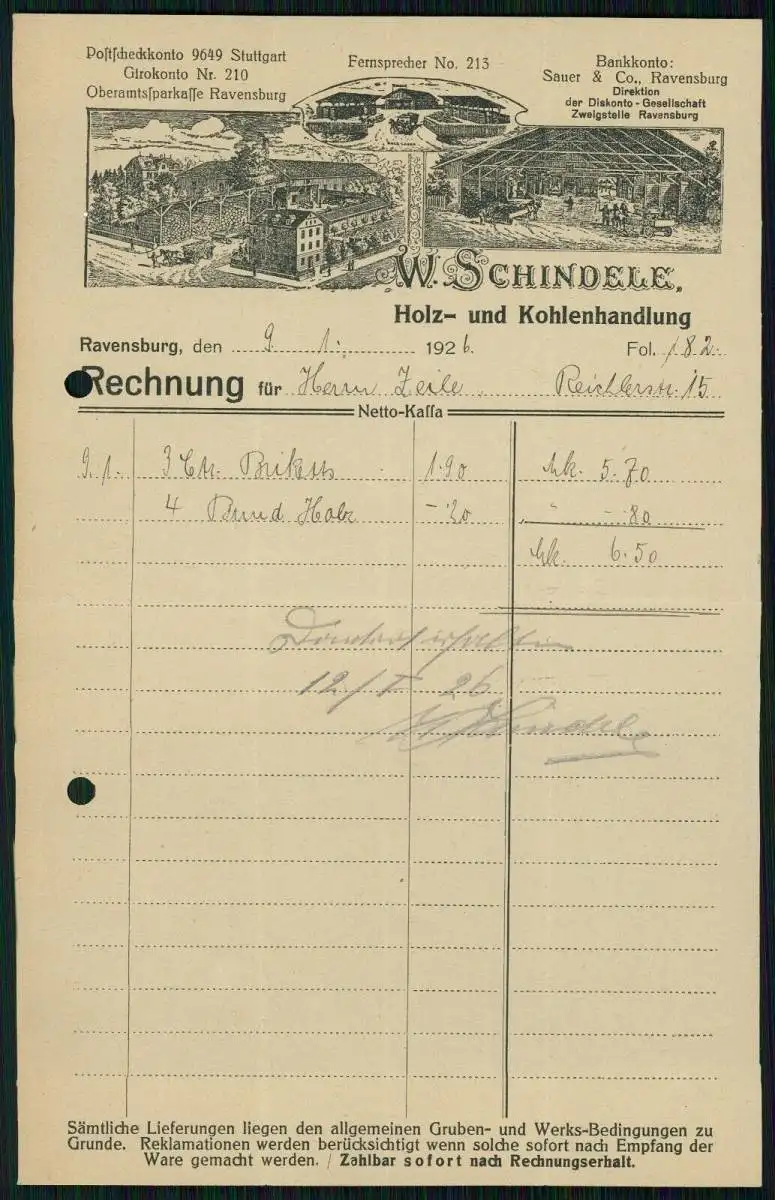 Postscheckkonto 9649 Stuttgart
Girokonto Nr. 210
Oberamtssparkasse Ravensburg
Fernsprecher No. 213
Bankkonto:
Sauer & Co., Ravensburg
Direktion
der Diskonto-Gesellschaft
Zweigstelle Ravensburg
W. SCHINDELE,
Holz- und Kohlenhandlung
Ravensburg, den 9. 1. 1926.
Fol. 182.
Rechnung für Herrn Zeile. Reichlerstr. 15
Netto-Kassa
9.1. 3 Ctr. Briketts 1.90 Mk. 5.70
4 Bund Holz -.20 " -.80
Mk. 6.50
Dankend erhalten
12/I 26
W Schindele
Sämtliche Lieferungen liegen den allgemeinen Gruben- und Werks-Bedingungen zu
Grunde. Reklamationen werden berücksichtigt wenn solche sofort nach Empfang der
Ware gemacht werden. / Zahlbar sofort nach Rechnungserhalt.